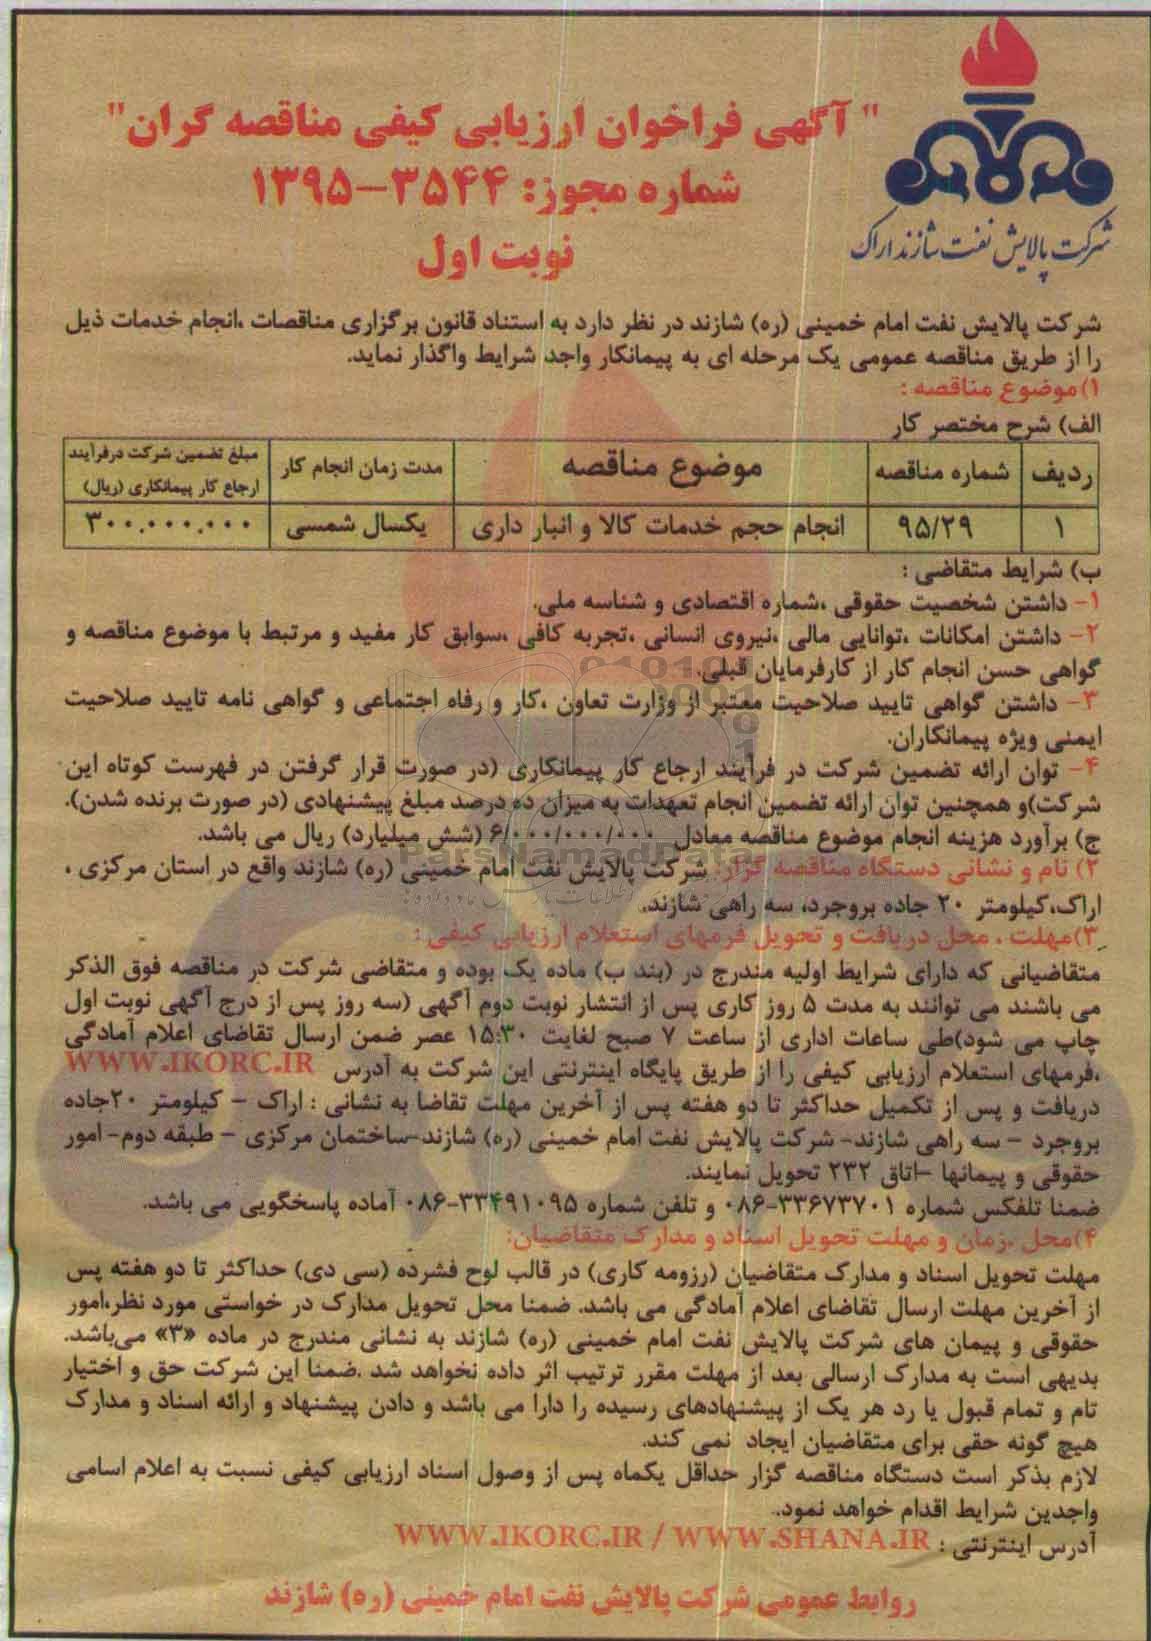 شرکت پالایش نفت شازند اراک
" آگهی فراخوان ارزیابی کیفی مناقصه گران"
شماره مجوز: ۳۵۴۴-۱۳۹۵
نوبت اول
شرکت پالایش نفت امام خمینی (ره) شازند در نظر دارد به استناد قانون برگزاری مناقصات ،انجام خدمات ذیل
را از طریق مناقصه عمومی یک مرحله ای به پیمانکار واجد شرایط واگذار نماید.
۱)موضوع مناقصه :
الف) شرح مختصر کار
ردیف شماره مناقصه موضوع مناقصه مدت زمان انجام کار مبلغ تضمین شرکت درفرآیند
ارجاع کار پیمانکاری (ریال)
۱ ۹۵/۲۹ انجام حجم خدمات کالا و انبار داری یکسال شمسی ۳۰۰.۰۰۰.۰۰۰
ب) شرایط متقاضی :
۱- داشتن شخصیت حقوقی ،شماره اقتصادی و شناسه ملی.
۲- داشتن امکانات ،توانایی مالی ،نیروی انسانی ،تجربه کافی ،سوابق کار مفید و مرتبط با موضوع مناقصه و
گواهی حسن انجام کار از کارفرمایان قبلی.
۳- داشتن گواهی تایید صلاحیت معتبر از وزارت تعاون ،کار و رفاه اجتماعی و گواهی نامه تایید صلاحیت
ایمنی ویژه پیمانکاران.
۴- توان ارائه تضمین شرکت در فرآیند ارجاع کار پیمانکاری (در صورت قرار گرفتن در فهرست کوتاه این
شرکت)و همچنین توان ارائه تضمین انجام تعهدات به میزان ده درصد مبلغ پیشنهادی (در صورت برنده شدن).
ج) برآورد هزینه انجام موضوع مناقصه معادل ۶/۰۰۰/۰۰۰/۰۰۰ (شش میلیارد) ریال می باشد.
ParsNamadData
۲) نام و نشانی دستگاه مناقصه گزار: شرکت پالایش نفت امام خمینی (ره) شازند واقع در استان مرکزی ،
اراک،کیلومتر ۲۰ جاده بروجرد، سه راهی شازند.
۳)مهلت ، محل دریافت و تحویل فرمهای استعلام ارزیابی کیفی :
متقاضیانی که دارای شرایط اولیه مندرج در (بند ب) ماده یک بوده و متقاضی شرکت در مناقصه فوق الذکر
می باشند می توانند به مدت ۵ روز کاری پس از انتشار نوبت دوم آگهی (سه روز پس از درج آگهی نوبت اول
چاپ می شود)طی ساعات اداری از ساعت ۷ صبح لغایت ۱۵:۳۰ عصر ضمن ارسال تقاضای اعلام آمادگی
،فرمهای استعلام ارزیابی کیفی را از طریق پایگاه اینترنتی این شرکت به آدرس WWW.IKORC.IR
دریافت و پس از تکمیل حداکثر تا دو هفته پس از آخرین مهلت تقاضا به نشانی : اراک - کیلومتر ۲۰جاده
بروجرد - سه راهی شازند- شرکت پالایش نفت امام خمینی (ره) شازند-ساختمان مرکزی - طبقه دوم- امور
حقوقی و پیمانها -اتاق ۲۳۲ تحویل نمایند.
ضمنا تلفکس شماره ۳۳۶۷۳۷۰۱-۰۸۶ و تلفن شماره ۳۳۴۹۱۰۹۵-۰۸۶ آماده پاسخگویی می باشد.
۴)محل ،زمان و مهلت تحویل اسناد و مدارک متقاضیان:
مهلت تحویل اسناد و مدارک متقاضیان (رزومه کاری) در قالب لوح فشرده (سی دی) حداکثر تا دو هفته پس
از آخرین مهلت ارسال تقاضای اعلام آمادگی می باشد. ضمنا محل تحویل مدارک در خواستی مورد نظر،امور
حقوقی و پیمان های شرکت پالایش نفت امام خمینی (ره) شازند به نشانی مندرج در ماده «۳» می‌باشد.
بدیهی است به مدارک ارسالی بعد از مهلت مقرر ترتیب اثر داده نخواهد شد .ضمنا این شرکت حق و اختیار
تام و تمام قبول یا رد هر یک از پیشنهادهای رسیده را دارا می باشد و دادن پیشنهاد و ارائه اسناد و مدارک
هیچ گونه حقی برای متقاضیان ایجاد نمی کند.
لازم بذکر است دستگاه مناقصه گزار حداقل یکماه پس از وصول اسناد ارزیابی کیفی نسبت به اعلام اسامی
واجدین شرایط اقدام خواهد نمود.
آدرس اینترنتی : WWW.IKORC.IR / WWW.SHANA.IR
روابط عمومی شرکت پالایش نفت امام خمینی (ره) شازند